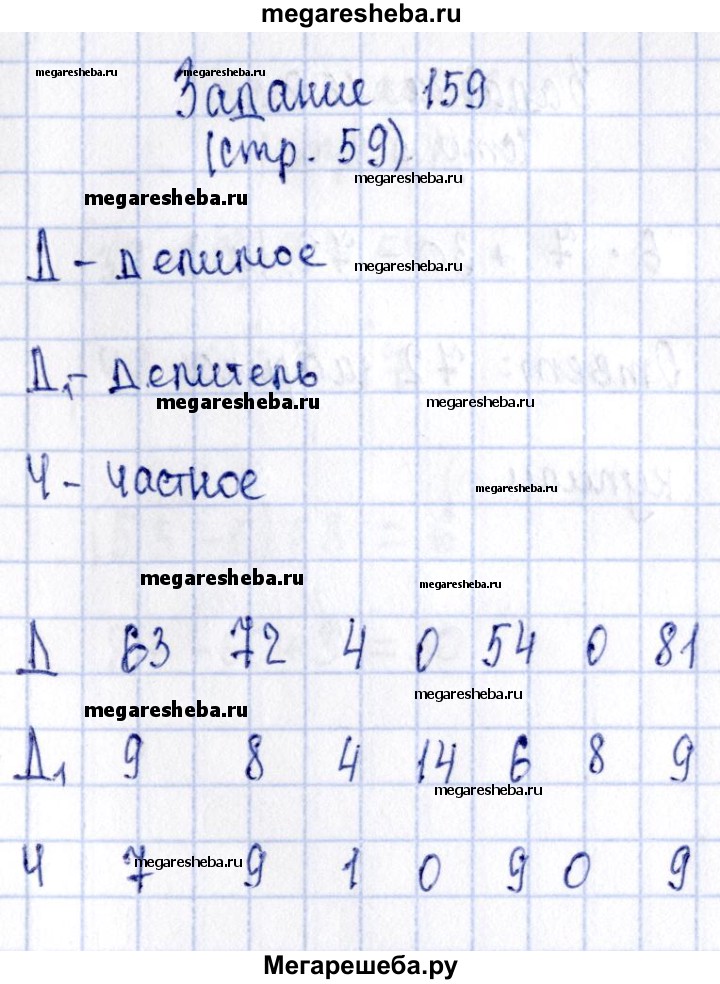 megaresheba.ru
megaresheba.ru
Задание 159
megaresheba.ru
(стр. 59).
megaresheba.ru
megaresheba.ru
Д - делимое
megaresheba.ru
Д₁ - делитель
megaresheba.ru
megaresheba.ru
Ч - частное
megaresheba.ru
megaresheba.ru
megaresheba.ru
Д 63 72 4 0 54 0 81
megaresheba.ru
megaresheba.ru
Д₁ 9 8 4 14 6 8 9
megaresheba.ru
Ч 7 9 1 0 9 0 9
megaresheba.ru
Мегарешеба.ру